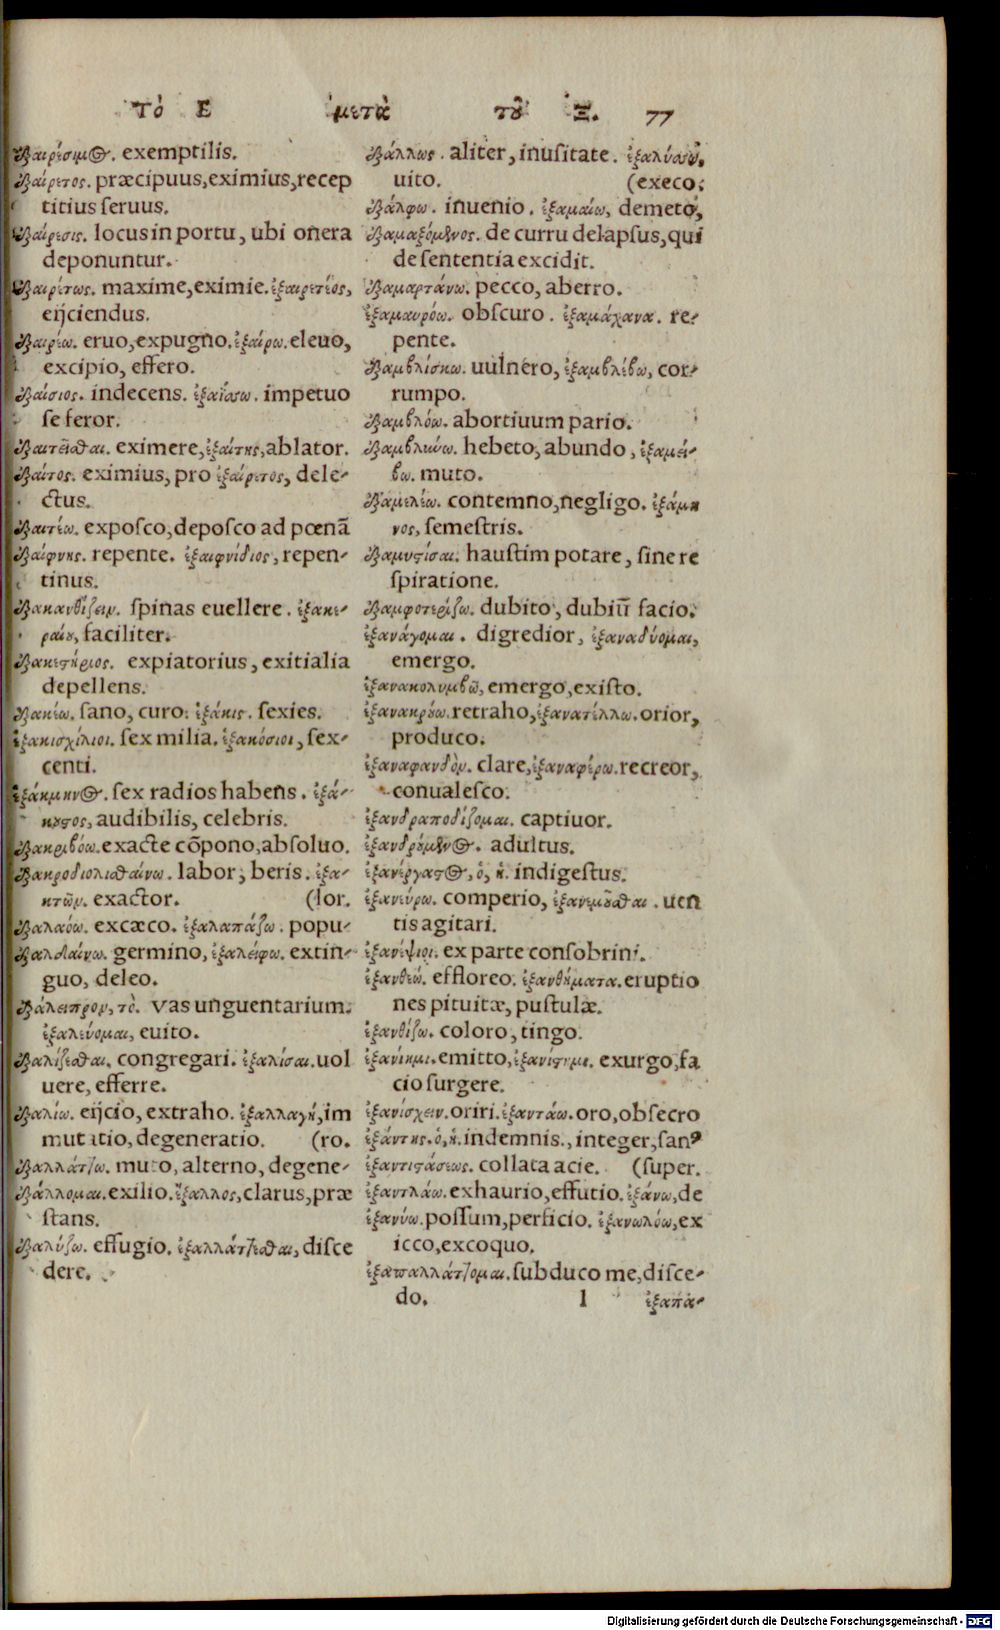 Τὸ Ε μετὰ τοῦ Ξ. 77
ἐξαιρέσιμος. exemptilis.
ἐξαίρετος. præcipuus, eximius, recep
titius seruus.
ἐξαίρεσις. locus in portu, ubi onera
deponuntur.
ἐξαιρέτως. maxime, eximie. ἐξαιρετέος,
eijciendus.
ἐξαιρέω. eruo, expugno. ἐξαίρω. eleuo,
excipio, effero.
ἐξαίσιος. indecens. ἐξαΐσσω. impetuo
se feror.
ἐξαιτεῖσθαι. eximere, ἐξαίτης, ablator.
ἐξαίτος. eximius, pro ἐξαίρετος, dele-
ctus.
ἐξαιτέω. exposco, deposco ad pœnã
ἐξαίφνης. repente. ἐξαιφνίδιος, repen-
tinus.
ἐξακανθίζειν. spinas euellere. ἐξακε-
ραίου, faciliter.
ἐξακεστήριος. expiatorius, exitialia
depellens.
ἐξακέω. sano, curo. ἑξάκις. sexies.
ἑξακισχίλιοι. sex milia. ἑξακόσιοι, sex-
centi.
ἑξάκμηνος. sex radios habens. ἐξά-
κουστος, audibilis, celebris.
ἐξακριβόω. exacte cõpono, absoluo.
ἐξακροδιολισθαίνω. labor, beris. ἐξα-
κτῶν. exactor. (lor.
ἐξαλαόω. excæco. ἐξαλαπάζω. popu-
ἐξαλδαίνω. germino, ἐξαλείφω. extin-
guo, deleo.
ἐξάλειπρον, τὸ. vas unguentarium.
ἐξαλεύομαι, euito.
ἐξαλίζεσθαι. congregari. ἐξαλίσαι. uol
uere, efferre.
ἐξαλίω. eijcio, extraho. ἐξαλλαγή, im
mutatio, degeneratio. (ro.
ἐξαλλάτζω. muto, alterno, degene-
ἐξάλλομαι. exilio. ἔξαλλος, clarus, præ
stans.
ἐξαλύζω. effugio. ἐξαλλάτζεσθαι, disce
dere.
ἐξάλλως. aliter, inusitate. ἐξαλύσσω,
uito. (execo:
ἐξάλφω. inuenio. ἐξαμαίω, demeto,
ἐξαμαξόμενος. de curru delapsus, qui
de sententia excidit.
ἐξαμαρτάνω. pecco, aberro.
ἐξαμαυρόω. obscuro. ἐξαμάχανα. re-
pente.
ἐξαμβλίσκω. uulnero, ἐξαμβλέβω, cor-
rumpo.
ἐξαμβλόω. abortiuum pario.
ἐξαμβλιώνω. hebeto, abundo, ἐξαμεί-
βω. muto.
ἐξαμελέω. contemno, negligo. ἑξάμη
νος, semestris.
ἐξαμυστίσαι. haustim potare, sine re
spiratione.
ἐξαμφοτερίζω. dubito, dubiũ facio.
ἐξανάγομαι. digredior, ἐξαναδύομαι,
emergo.
ἐξανακολυμβῶ, emergo, existo.
ἐξανακρούω. retraho, ἐξανατέλλω. orior,
produco.
ἐξαναφανδὸν. clare, ἐξαναφέρω. recreor,
conualesco.
ἐξανδραποδίζομαι. captiuor.
ἐξανδρούμενος. adultus.
ἐξανέργαστος, ὁ, ἡ. indigestus.
ἐξανεύρω. comperio, ἐξανεμοῦσθαι. uen
tis agitari.
ἐξανέψιοι. ex parte consobrini.
ἐξανθέω. effloreo. ἐξανθήματα. eruptio
nes pituitæ, pustulæ.
ἐξανθίζω. coloro, tingo.
ἐξανίημι. emitto, ἐξανίστημι. exurgo, fa
cio surgere.
ἐξανίσχειν. oriri. ἐξαντάω. oro, obsecro
ἐξάντης. ὁ, ἡ. indemnis., integer, sanꝰ
ἐξαντιστάσεως. collata acie. (super.
ἐξαντλάω. exhaurio, effutio. ἐξάνω, de
ἐξανύω. possum, perficio. ἐξανωλόω, ex
icco, excoquo.
ἐξαπαλλάτζομαι. subduco me, disce-
do. l ἐξαπά-
Digitalisierung gefördert durch die Deutsche Forschungsgemeinschaft - DFG